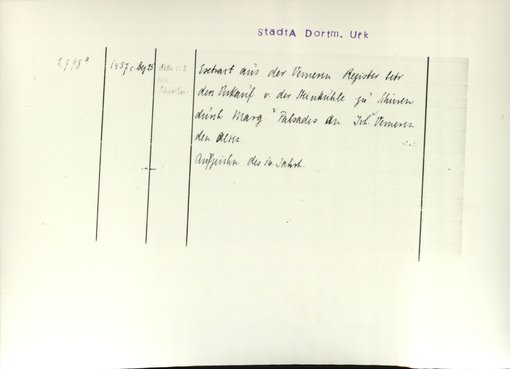 StadtA Dortm. Urk
2798a
1437
Extract aus der Vemeren Register betr
den Verkauf v. der Steinkühle zu
durch Marg Palsades an Joh Vemeren
den Alten
Aufzeichn. des 16 Jahrh.